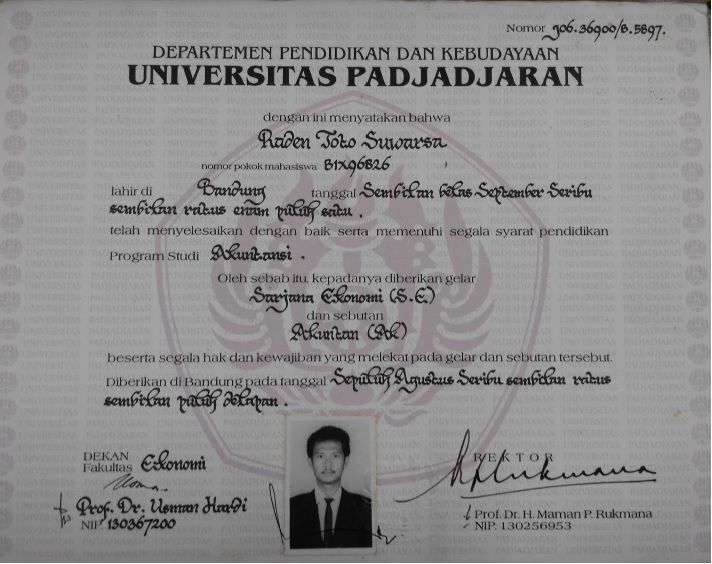 Nomor 906.36900/B.5897.
DEPARTEMEN PENDIDIKAN DAN KEBUDAYAAN
UNIVERSITAS PADJADJARAN
dengan ini menyatakan bahwa
Raden Toto Suwarsa
nomor pokok mahasiswa B1X96826
lahir di Bandung tanggal Sembilan belas September Seribu
sembilan ratus enam puluh satu .
telah menyelesaikan dengan baik serta memenuhi segala syarat pendidikan
Program Studi Akuntansi .
Oleh sebab itu, kepadanya diberikan gelar
Sarjana Ekonomi (S.E.)
dan sebutan
Akuntan (Ak)
beserta segala hak dan kewajiban yang melekat pada gelar dan sebutan tersebut.
Diberikan di Bandung pada tanggal Sepuluh Agustus Seribu sembilan ratus
sembilan puluh delapan .
DEKAN
Fakultas Ekonomi
Prof. Dr. Usman Hardi
NIP. 130367200
REKTOR
Prof. Dr. H. Maman P. Rukmana
NIP. 130256953